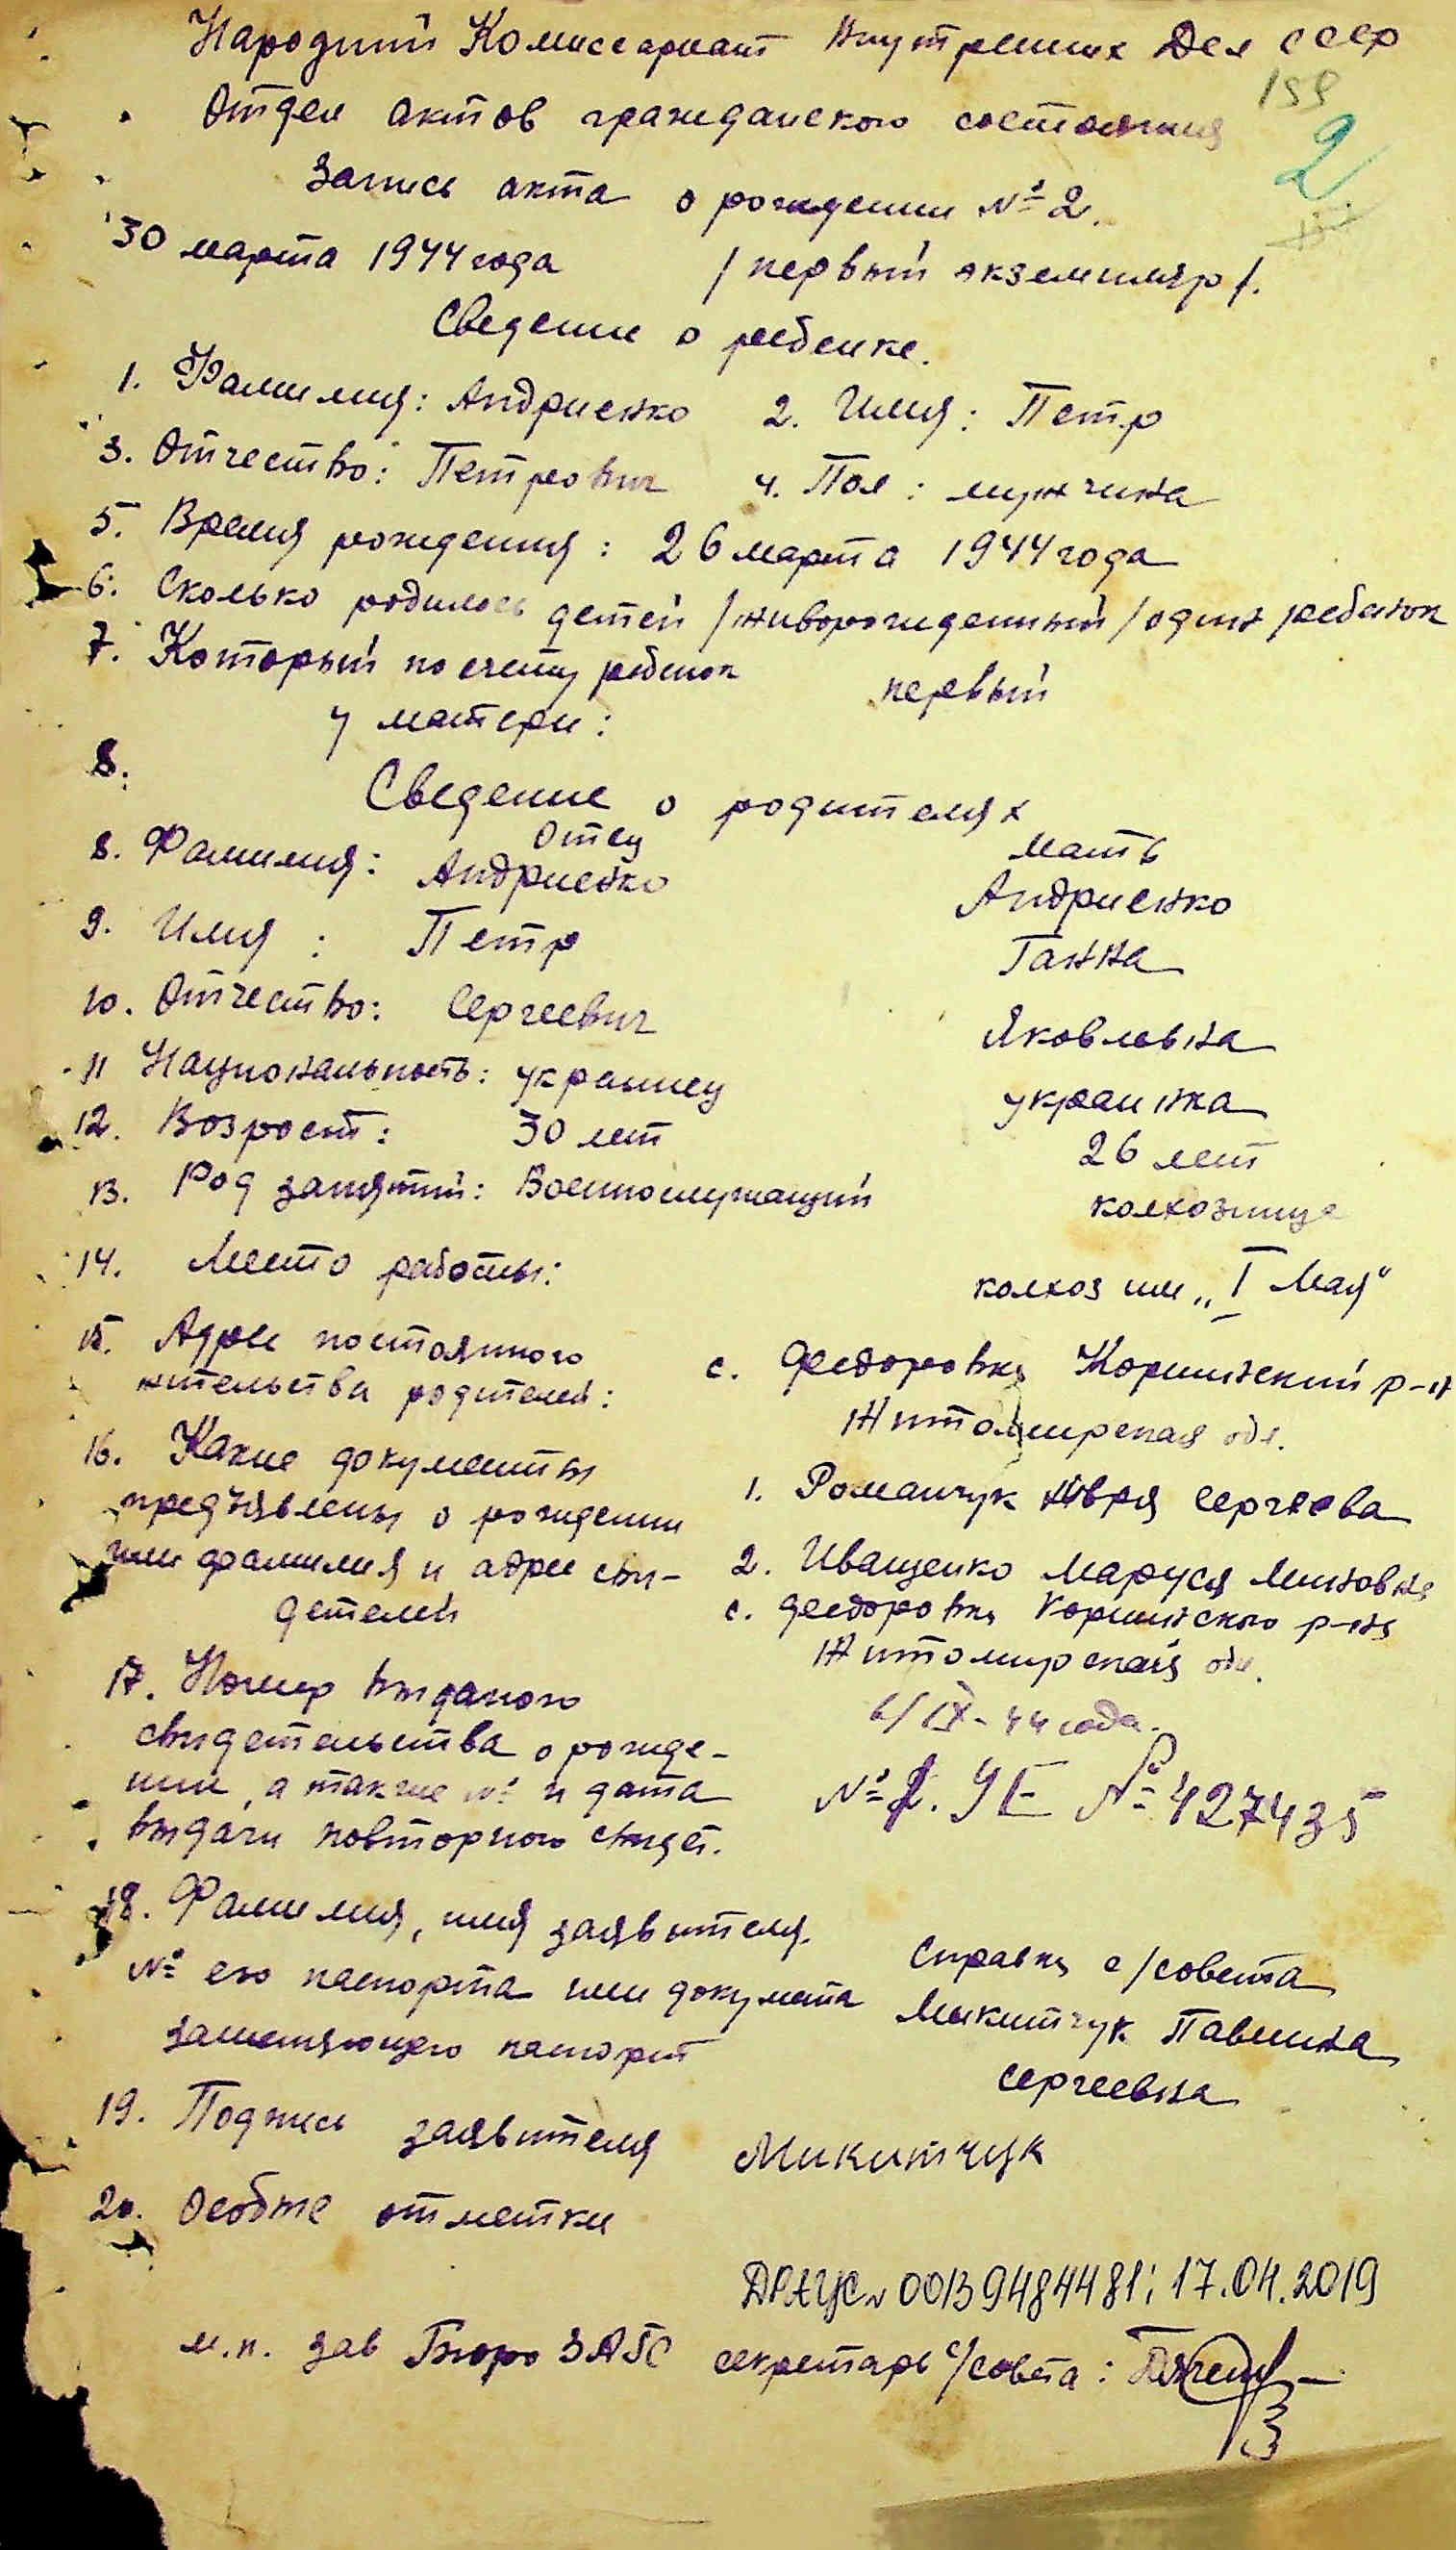 Народний Комиссариат Внутренних Дел СССР
159
Отдел актов гражданского состояния
2
Запись акта о рождении №2.
30 марта 1944 года /первый экземпляр/.
Сведение о ребенке.
1. Фамилия: Андриенко 2. Имя: Петр
3. Отчество: Петрович 4. Пол: мужчина
5. Время рождения: 26 марта 1944 года
6. Сколько родилось детей /живорожденный/ один ребенок
7. Который по счету ребенок первый
у матери:
8.
Сведение о родителях
Отец мать
8. Фамилия: Андриенко Андриенко
9. Имя: Петр Ганна
10. Отчество: Сергеевич Яковлевна
11 Национальность: украинец украинка
12. Возрост: 30 лет 26 лет
13. Род занятий: Военнослужащий колхозница
14. Место работы: колхоз им „I Мая"
15. Адрес постоянного с. Федоровка Коршивский р-н
жительства родителей: Житомирская обл.
16. Какие документы 1. Романчук Сергеева
предъявлены о рождении
или фамилия и адрес сви- 2. Иващенко Маруся
детелей с. Федоровка р-на
Житомирская обл.
17. Номер выданого 6/IX-44 года.
свидетельства о рожде-
нии, а также № и дата № УЕ № 427435
выдачи повторного свидет.
18. Фамилия, имя заявителя. Справка с/совета
№ его паспорта или документа Мыкитчук Павлина
заменяющего паспорт Сергеевна
19. Подпись заявителя Микитчук
20. Особые отметки
ДРАЦС 00139484481; 17.04.2019
м.п. зав Бюро ЗАГС секретарь с/совета: